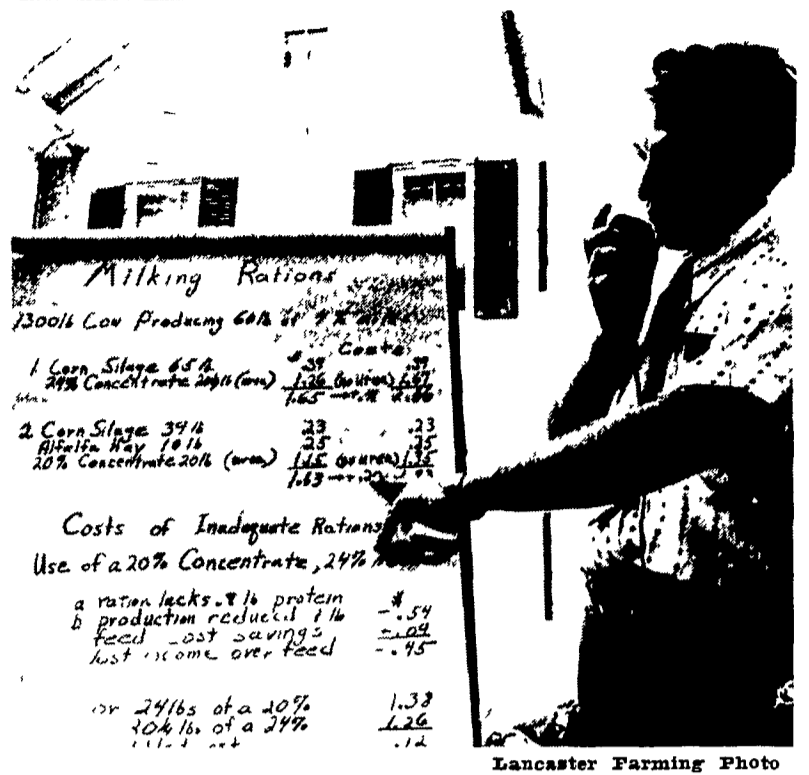 Milking Rations
1300 lb Cow Producing 60 lb of 4%
$ Costs
1. Corn Silage 65 lb .39 .39
24% Concentrate (urea) 1.26 (no urea)
1.65
2 Corn Silage 34 lb .23 .23
Alfalfa Hay 10 lb .25 .25
20% Concentrate 20 lb (urea) 1.15 (no urea)
1.63
Costs of Inadequate Rations
Use of a 20% Concentrate, 24%
a ration lacks .8 lb protein $
b production reduced lb -.54
feed cost savings -.04
lost income over feed -.45
or 24 lbs of a 20% 1.38
of a 24% 1.26
.12
Lancaster Farming Photo